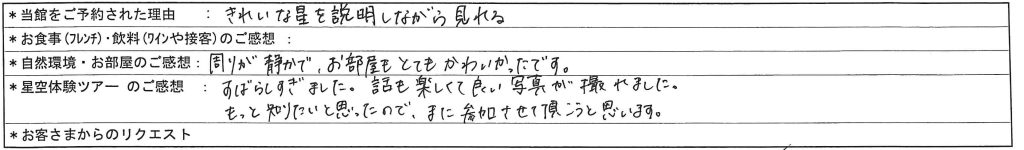 *当館をご予約された理由 : きれいな星を説明しながら見れる
*お食事(フレンチ)・飲料(ワインや接客)のご感想 :
*自然環境・お部屋のご感想 : 周りが静かで、お部屋もとてもかわいかったです。
*星空体験ツアー のご感想 : すばらしすぎました。話も楽しくて良い写真が撮れました。
もっと知りたいと思ったので、また参加させて頂こうと思います。
*お客さまからのリクエスト